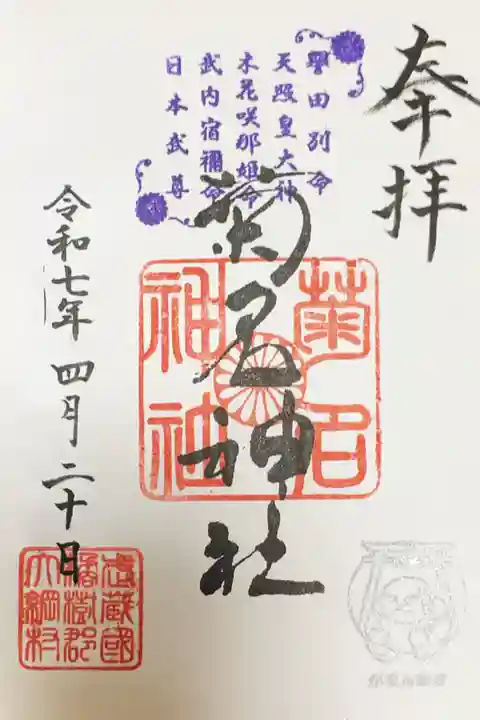 奉拝
誉田別命
天照皇大神
木花咲那姫命
武内宿禰命
日本武尊
菊名神社
菊名
神社
令和七年四月二十日
武蔵國
橘樹郡
大綱村